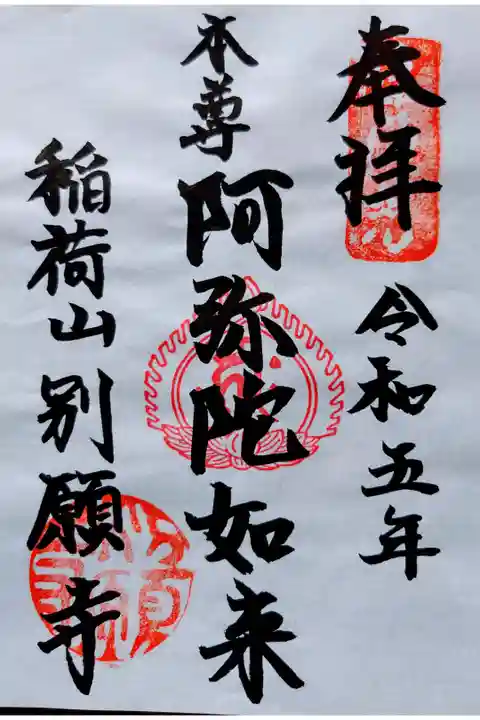 奉拝
令和五年
本尊 阿弥陀如来
稲荷山別願寺